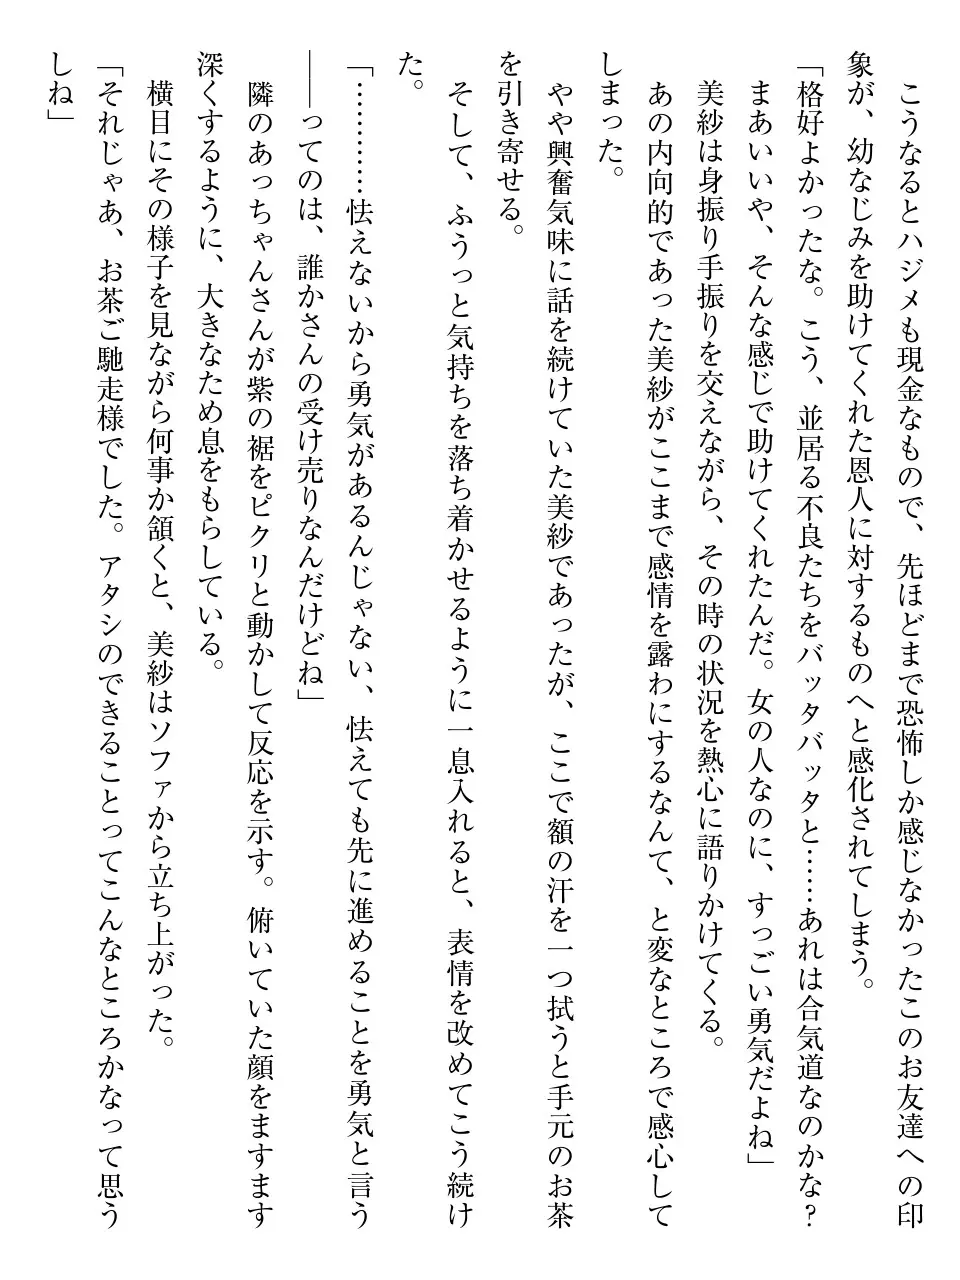 こうなるとハジメも現金なもので、先ほどまで恐怖しか感じなかったこのお友達への印
象が、幼なじみを助けてくれた恩人に対するものへと感化されてしまう。
「格好よかったな。こう、並居る不良たちをバッタバッタと……あれは合気道なのかな？
　まあいいや、そんな感じで助けてくれたんだ。女の人なのに、すっごい勇気だよね」
　美紗は身振り手振りを交えながら、その時の状況を熱心に語りかけてくる。
　あの内向的であった美紗がここまで感情を露わにするなんて、と変なところで感心して
しまった。
　やや興奮気味に話を続けていた美紗であったが、ここで額の汗を一つ拭うと手元のお茶
を引き寄せる。
　そして、ふうっと気持ちを落ち着かせるように一息入れると、表情を改めてこう続け
た。
「…………怯えないから勇気があるんじゃない、怯えても先に進めることを勇気と言う
――ってのは、誰かさんの受け売りなんだけどね」
　隣のあっちゃんさんが紫の裾をピクリと動かして反応を示す。俯いていた顔をますます
深くするように、大きなため息をもらしている。
　横目にその様子を見ながら何事か頷くと、美紗はソファから立ち上がった。
「それじゃあ、お茶ご馳走様でした。アタシのできることってこんなところかなって思う
しね」